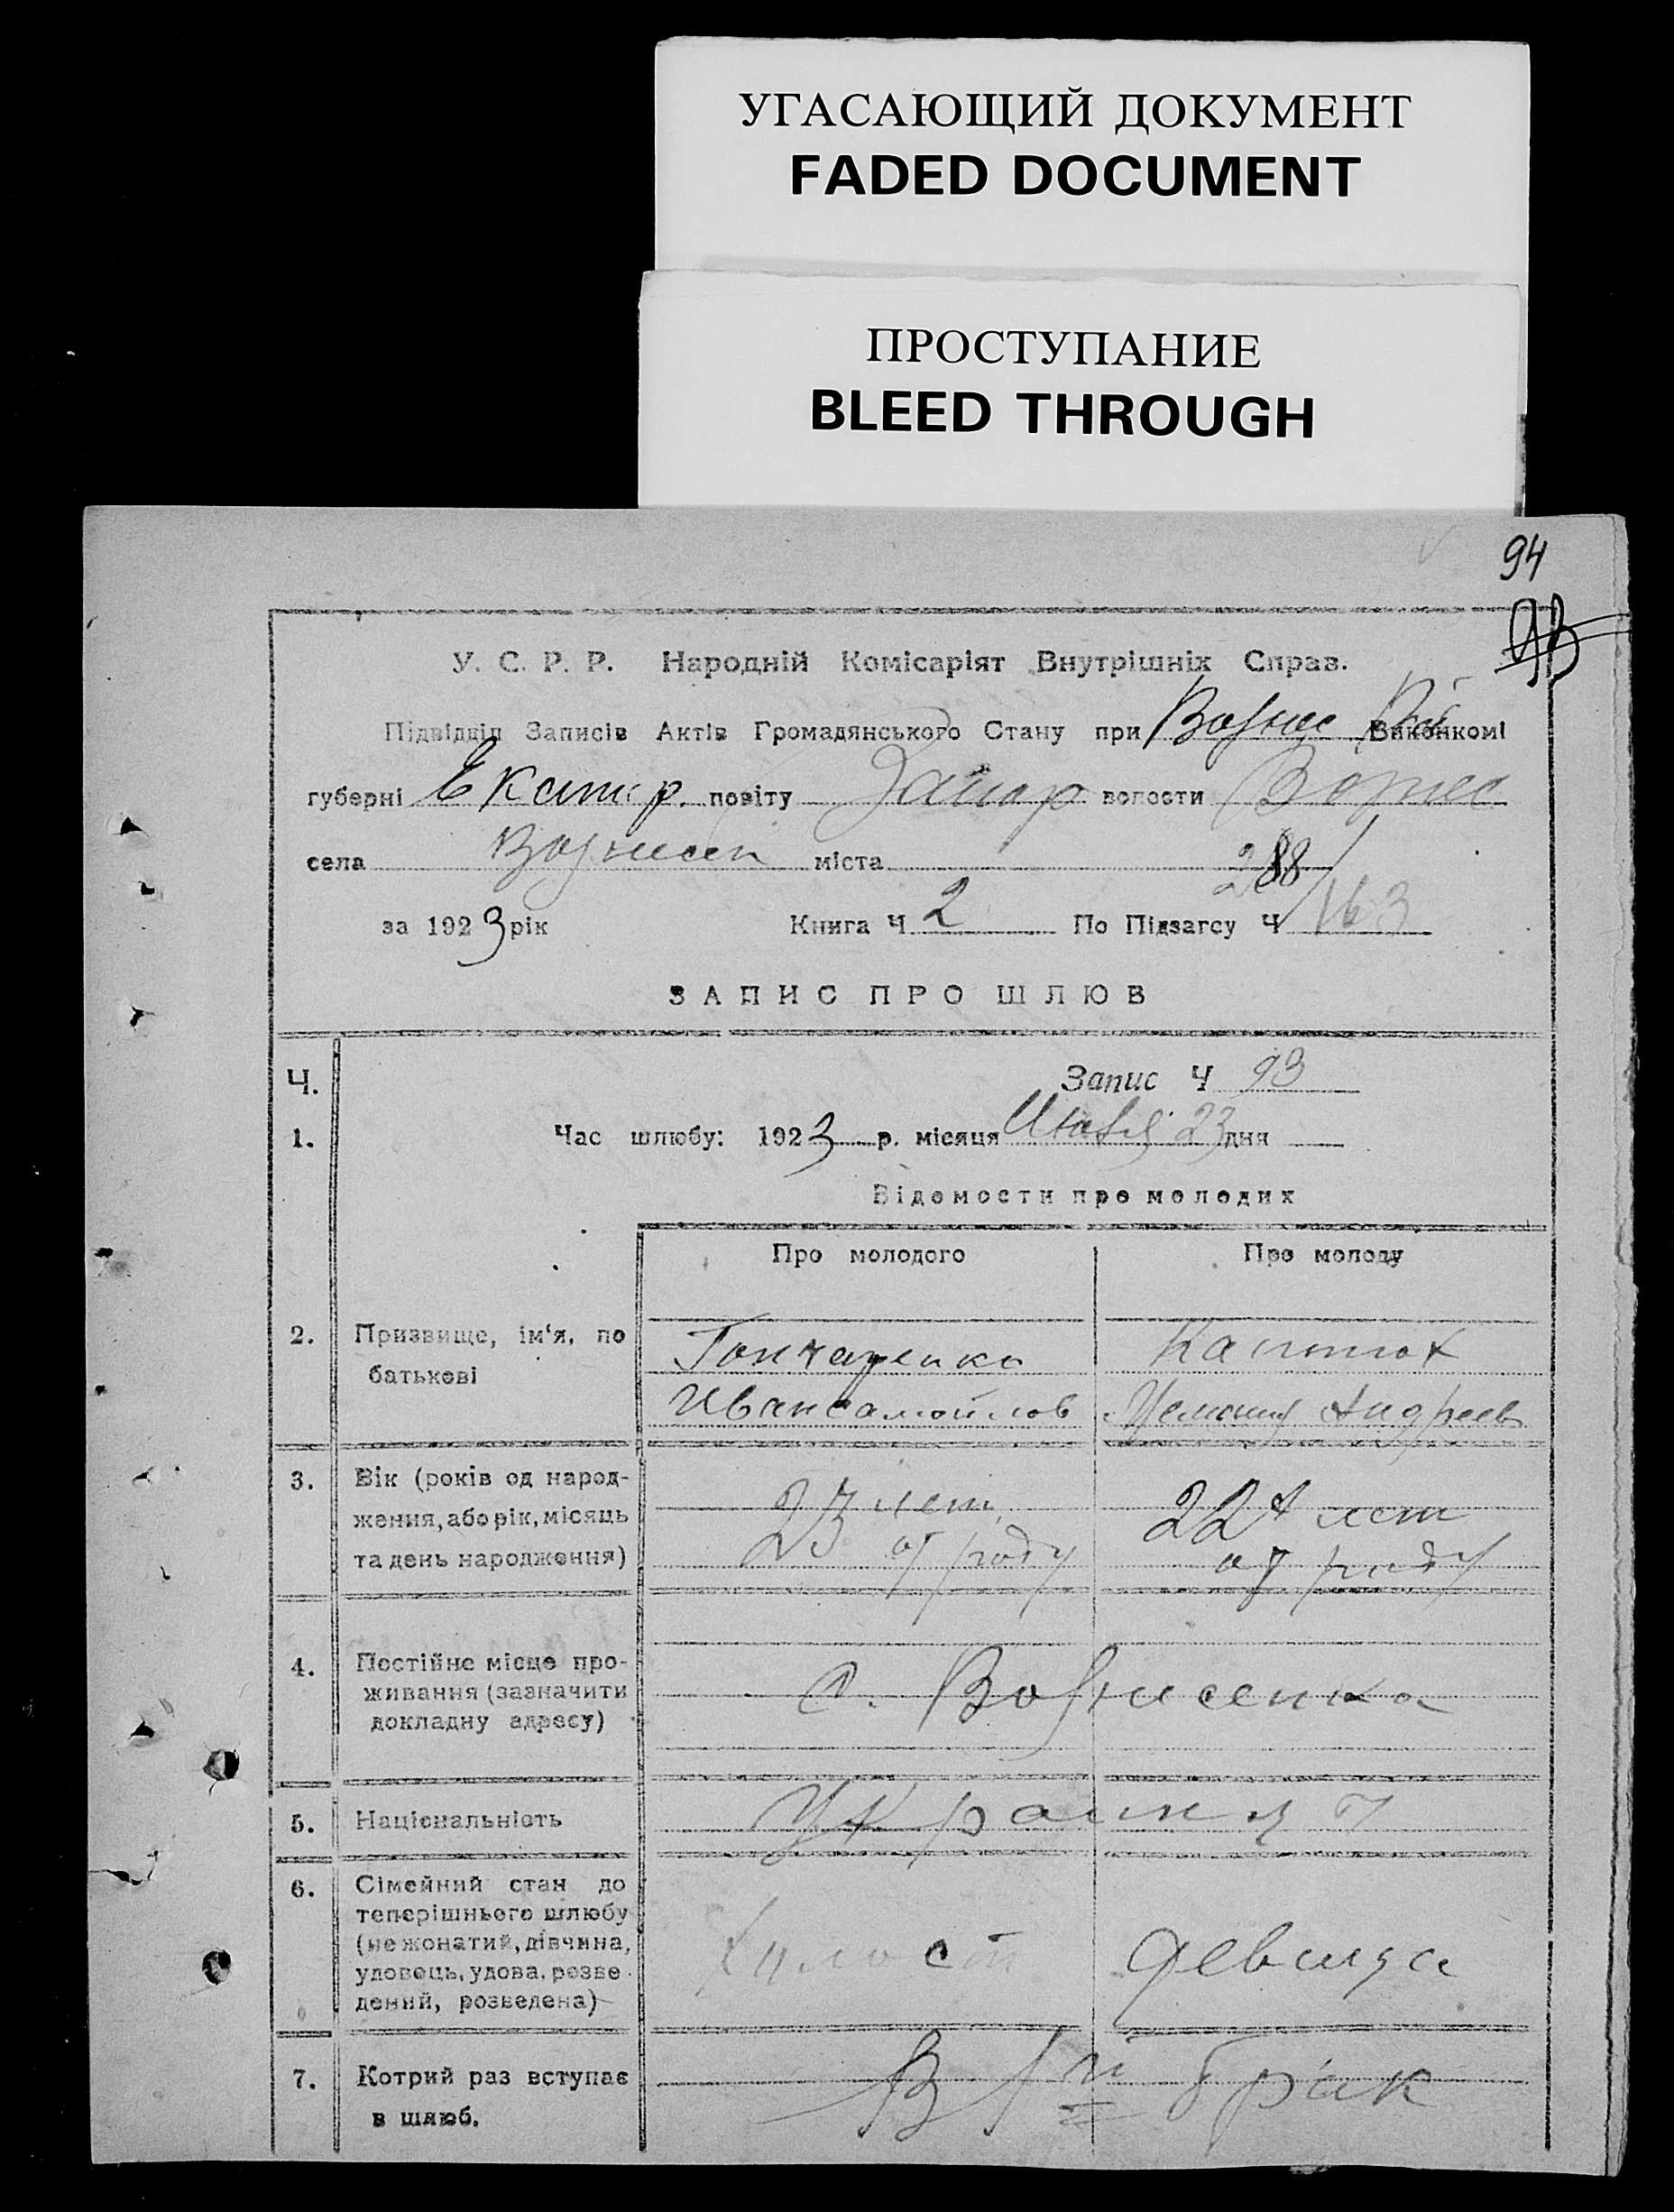 УГАСАЮЩИЙ ДОКУМЕНТ
FADED DOCUMENT
ПРОСТУПАНИЕ
BLEED THROUGH
94
У. С. Р. Р. Народній Комісаріят Внутрішніх Справ.
Підвідділ Записів Актів Громадянського Стану при Вознес Виконкомі
губерні Екатер. повіту Запор волости Вознес
села Вознесен міста 288
за 1923 рік Книга Ч 2 По Підзагсу Ч 163
ЗАПИС ПРО ШЛЮБ
Ч. Запис Ч 93
1. Час шлюбу: 1923 р. місяця 23 дня
Відомости про молодих
Про молодого Про молоду
2. Призвище, ім'я, по Гончаренко
батькові Иван Самойлов Андреев
3. Вік (років од народ- 23 лет 22 лет
ження, або рік, місяць
та день народження) от роду от роду
4. Постійне місце про- с. Вознесенка
живання (зазначити
докладну адресу)
5. Національність Украинцы
6. Сімейний стан до
теперішнього шлюбу
(не жонатий, дівчина, Холост девица
удовець, удова, розве-
дений, розведена)
7. Котрий раз вступає В 1й брак
в шлюб.